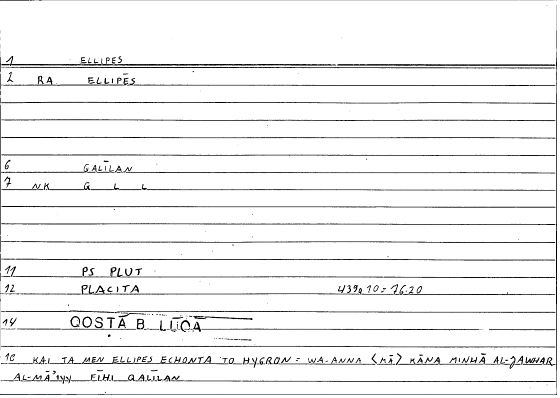 1 ELLIPES
2 RA ELLIPĒS
6 GALĪLAN
7 NK G L L
11 PS PLUT
12 PLACITA 439a10=16.20
14 QOSTĀ B. LŪQĀ
18 KAI TA MEN ELLIPES ECHONTA TO HYGRON = WA-ANNA <MĀ> KĀNA MINHĀ AL-JAWHAR
AL-MĀʾIYY FĪHI QALĪLAN